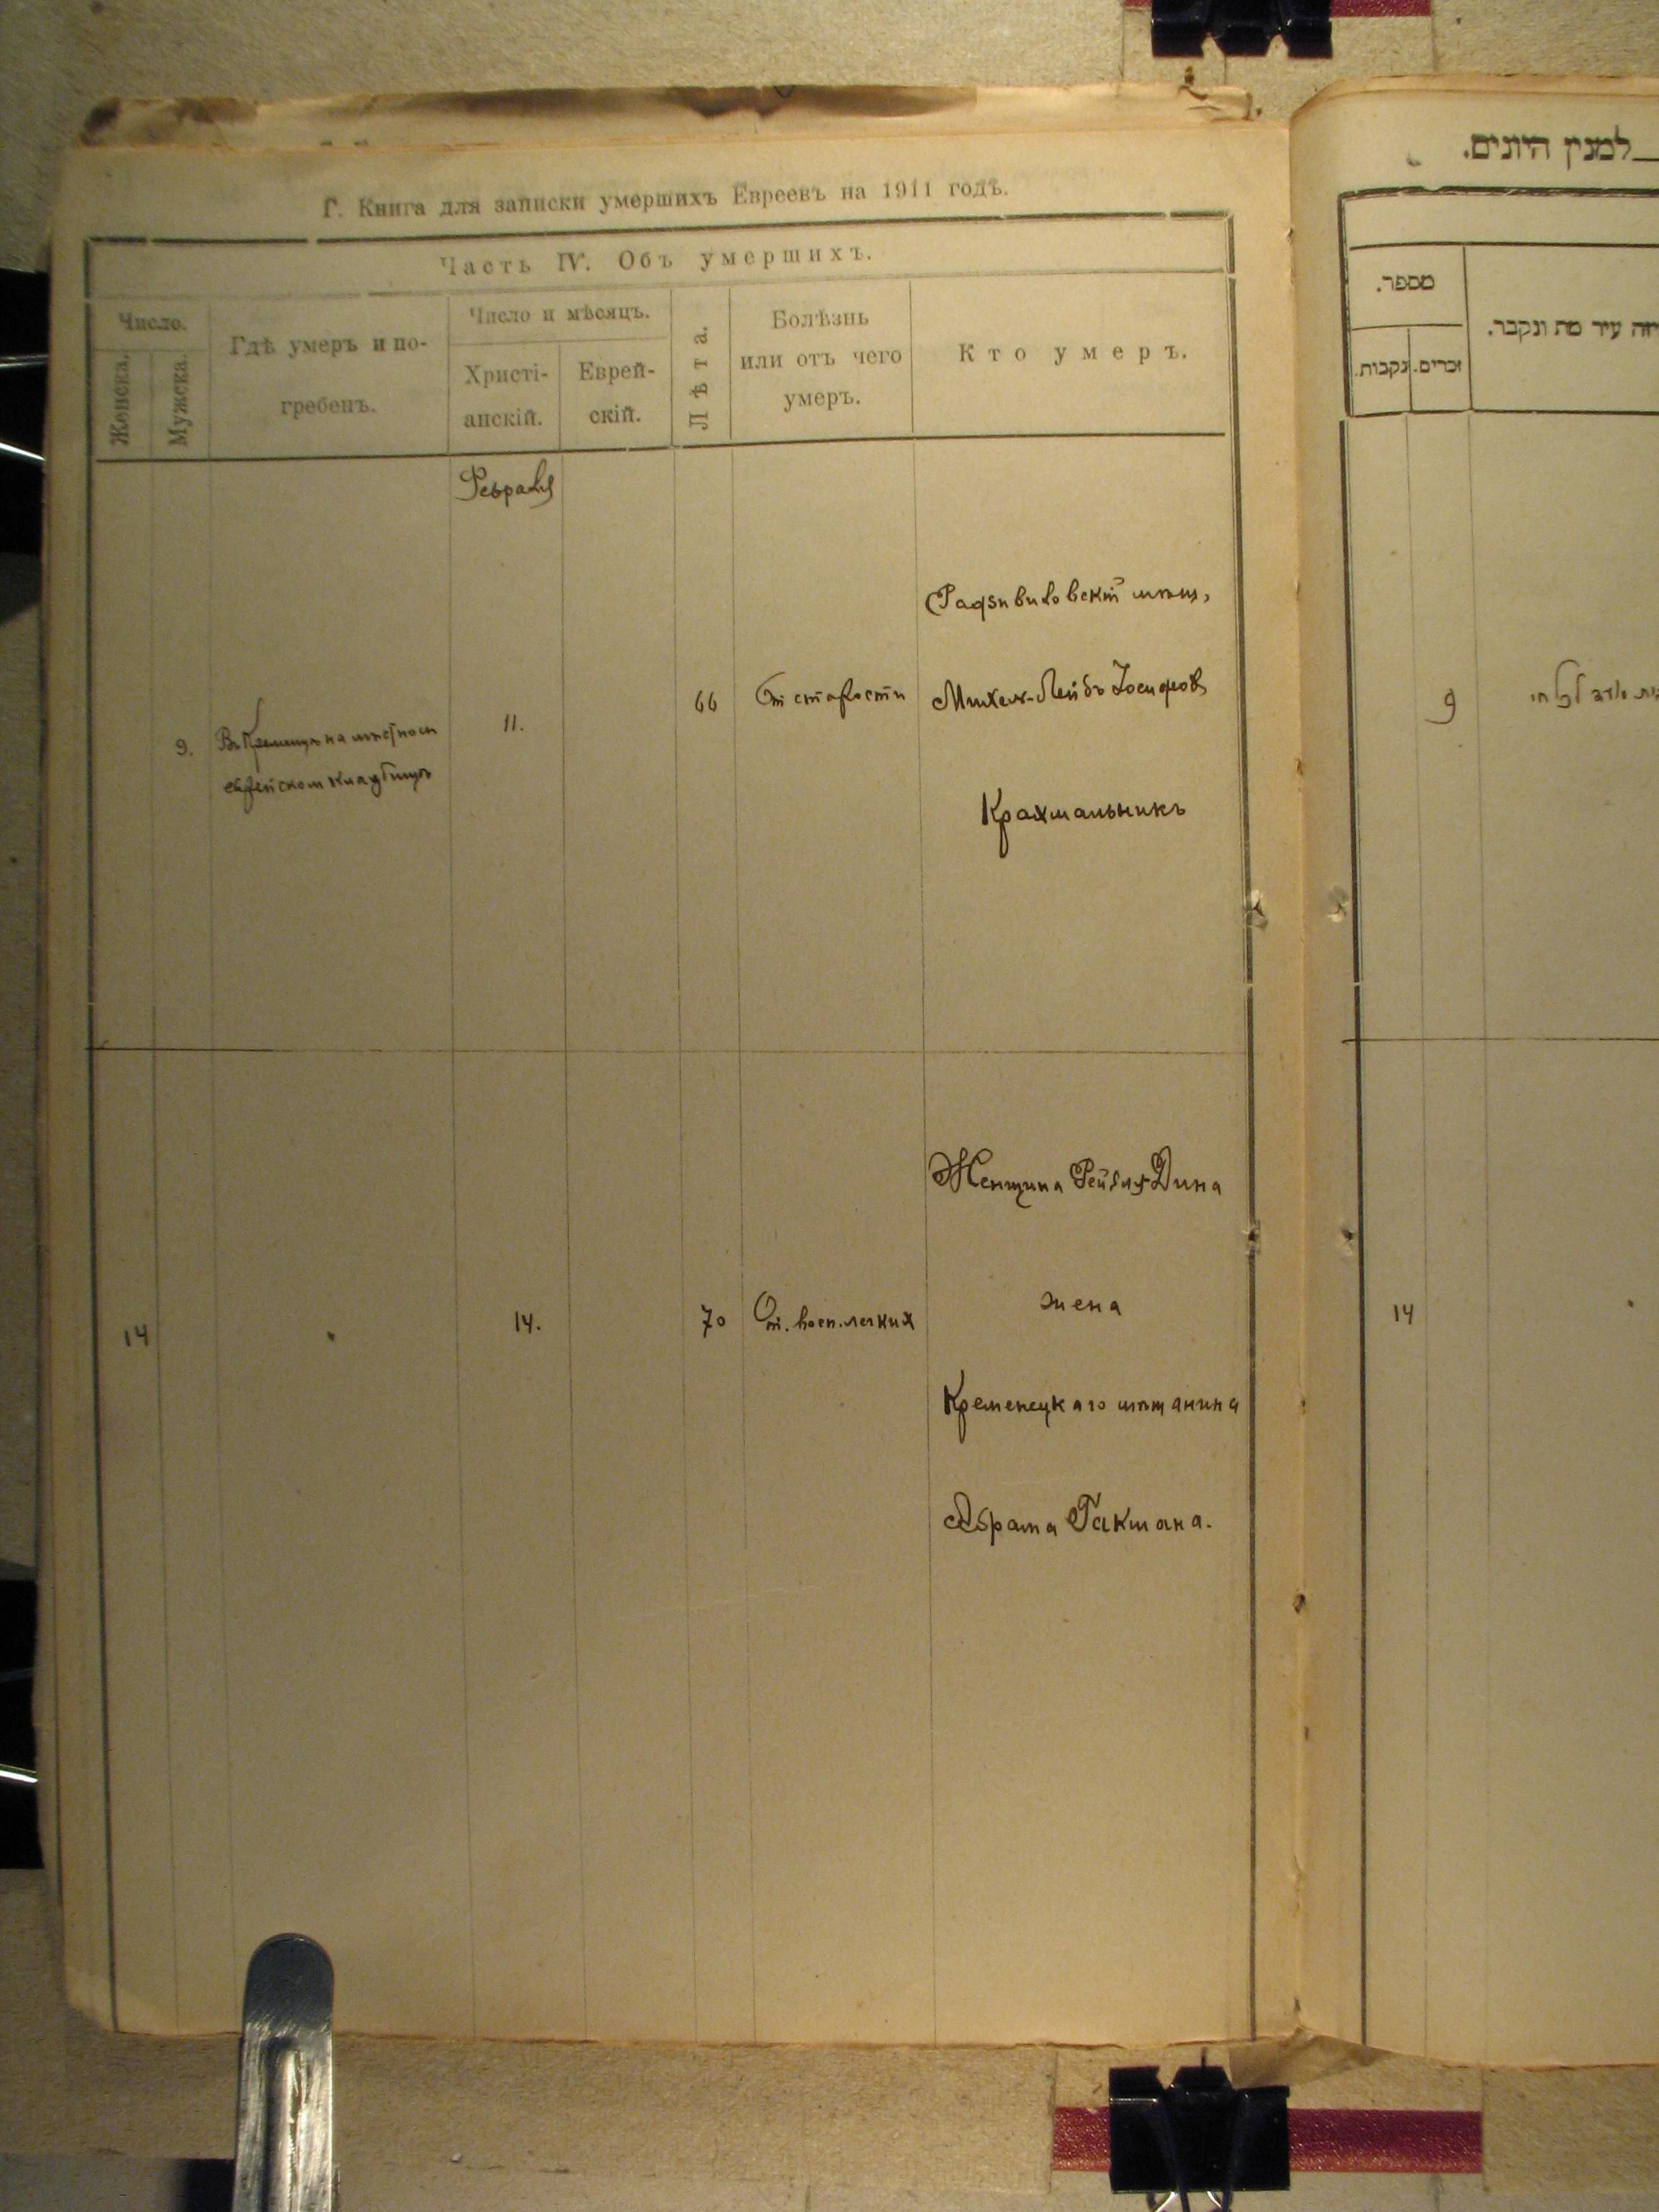 Г. Книга для записки умершихъ Евреевъ на 1911 годъ.
Часть IV. Объ умершихъ.
Число.
Женска.
Мужска.
Гдѣ умеръ и по-
гребенъ.
Число и мѣсяцъ.
Христі-
анскій.
Еврей-
скій.
Лѣта.
Болѣзнь
или отъ чего
умеръ.
Кто умеръ.
Февраля
9.
Въ Кременцѣ на мѣстном
еврейском кладбищѣ
11.
66
От старости
Радзивиловскій мѣщ.
Михель-Лейбъ Іосифов
Крахмальникъ
14
"
14.
70
От. восп. легких
Женщина Рейзля-Дина
жена
Кременецкаго мѣщанина
Абрама Гакмана.
למנין היונים.
מספר.
נקבות.
זכרים.
עיר מת ונקבר.
9
14